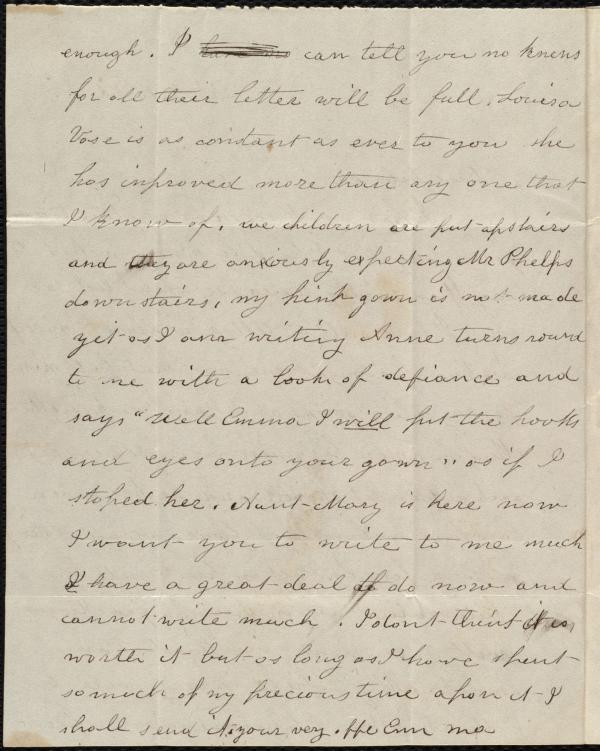 enough. I can tell you no knews
for all their letter will be full. Louisa
Vose is as constant as ever to you she
has inproved more than any one that
I know of. we children are put upstairs
and they are anxiously expecting Mr Phelps
downstairs, my pink gown is not made
yet as I am writing Anne turns round
to me with a look of defiance and
says "Well Emma I will put the hooks
and eyes onto your gown" as if I
stoped her. Aunt Mary is here now
I want you to write to me much
I have a great deal to do now and
cannot write much. I dont think it is
worth it but as long as I have spent
so much of my precious time apon it I
shall send it. your very affe Em ma